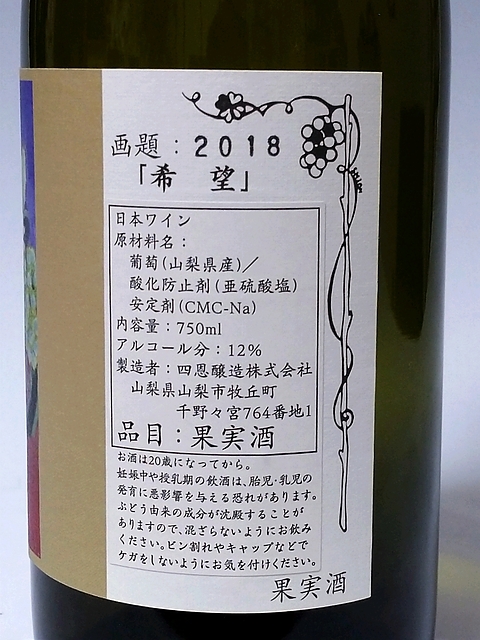 画題：2018
「希 望」
日本ワイン
原材料名：
葡萄(山梨県産)／
酸化防止剤(亜硫酸塩)
安定剤(CMC-Na)
内容量：750ml
アルコール分：12%
製造者：四恩醸造株式会社
山梨県山梨市牧丘町
千野々宮764番地1
品目：果実酒
お酒は20歳になってから。
妊娠中や授乳期の飲酒は、胎児・乳児の
発育に悪影響を与える恐れがあります。
ぶどう由来の成分が沈殿することが
ありますので、混ざらないようにお飲み
ください。ビン割れやキャップなどで
ケガをしないようにお気を付けください。
果実酒